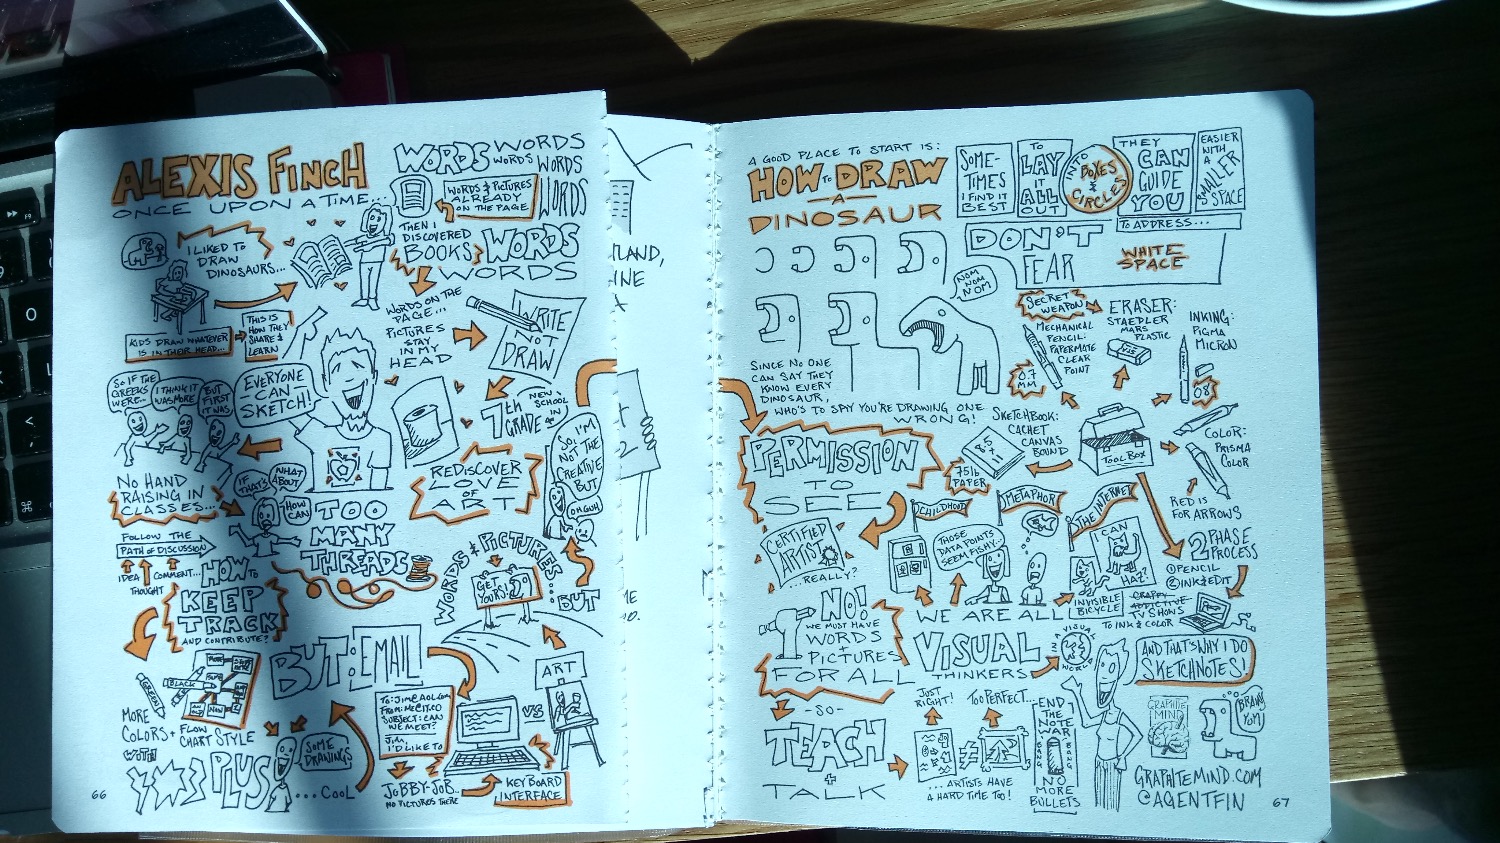 ALEXIS FINCH
ONCE UPON A TIME...
I LIKED TO
DRAW
DINOSAURS...
KIDS DRAW WHATEVER
IS IN THEIR HEAD...
THIS IS
HOW THEY
SHARE &
LEARN
WORDS WORDS
WORDS WORDS
WORDS
WORDS & PICTURES
ALREADY
ON THE PAGE
THEN I
DISCOVERED
BOOKS
WORDS
WORDS
WORDS ON THE
PAGE...
PICTURES
STAY
IN MY
HEAD
WRITE
NOT
DRAW
SO IF THE
GREEKS
WERE...
I THINK IT
WAS MORE
BUT
FIRST
IT WAS
EVERYONE
CAN
SKETCH!
7TH
GRADE
NEW
SCHOOL
IN
REDISCOVER
LOVE
OF
ART
SO, I'M
NOT THE
CREATIVE
BUT
NO HAND
RAISING IN
CLASSES...
IF
THAT'S
WHAT
ABOUT
HOW
CAN
TOO
MANY
THREADS
FOLLOW THE
PATH OF DISCUSSION
IDEA
THOUGHT
COMMENT...
HOW TO
KEEP
TRACK
AND CONTRIBUTE?
WORDS & PICTURES
GET
YOURS!
...BUT
GREEN
BLACK
MORE
COLORS + FLOW
CHART STYLE
WITH
PLUS
SOME
DRAWINGS
...COOL
BUT: EMAIL
TO: JIM@AOL.COM
FROM: ME@IT.CO
SUBJECT: CAN
WE MEET?
JIM,
I'D LIKE TO
VS
ART
JOBBY-JOB...
NO PICTURES THERE
KEYBOARD
INTERFACE
66
A GOOD PLACE TO START IS:
HOW TO DRAW
A
DINOSAUR
SOME-
TIMES
I FIND IT
BEST
TO
LAY
IT
ALL
OUT
INTO
BOXES
&
CIRCLES
THEY
CAN
GUIDE
YOU
EASIER
WITH
A
SMALLER
SPACE
TO ADDRESS...
DON'T
FEAR
WHITE
SPACE
NOM
NOM
NOM
SINCE NO ONE
CAN SAY THEY
KNOW EVERY
DINOSAUR,
WHO'S TO SAY YOU'RE DRAWING ONE
WRONG!
SECRET
WEAPON
MECHANICAL
PENCIL:
PAPERMATE
CLEAR
POINT
0.7
MM
ERASER:
STAEDLER
MARS
PLASTIC
INKING:
PIGMA
MICRON
08
SKETCHBOOK:
CACHET
CANVAS
BOUND
8.5
x
11
75lb
PAPER
TOOL BOX
COLOR:
PRISMA
COLOR
RED IS
FOR ARROWS
PERMISSION
TO
SEE
CERTIFIED
ARTIST
...REALLY?
CHILDHOOD
METAPHOR
THE INTERNET
THOSE
DATA POINTS
SEEM FISHY...
CAN
HAZ?
INVISIBLE
BICYCLE
2 PHASE
PROCESS
① PENCIL
② INK & EDIT
CRAPPY
ADDICTIVE
TV SHOWS
TO INK & COLOR
NO!
WE MUST HAVE
WORDS
+
PICTURES
FOR ALL
WE ARE ALL
VISUAL
THINKERS
IN A VISUAL
WORLD
AND THAT'S WHY I DO
SKETCHNOTES!
-SO-
TEACH
+
TALK
JUST
RIGHT!
TOO PERFECT...
...ARTISTS HAVE
A HARD TIME TOO!
END
THE
NOTE
WAR
BANG
BANG
NO
MORE
BULLETS
GRAPHITE
MIND
BRAINS
YOM!
GRAPHITEMIND.COM
@AGENTFIN
67